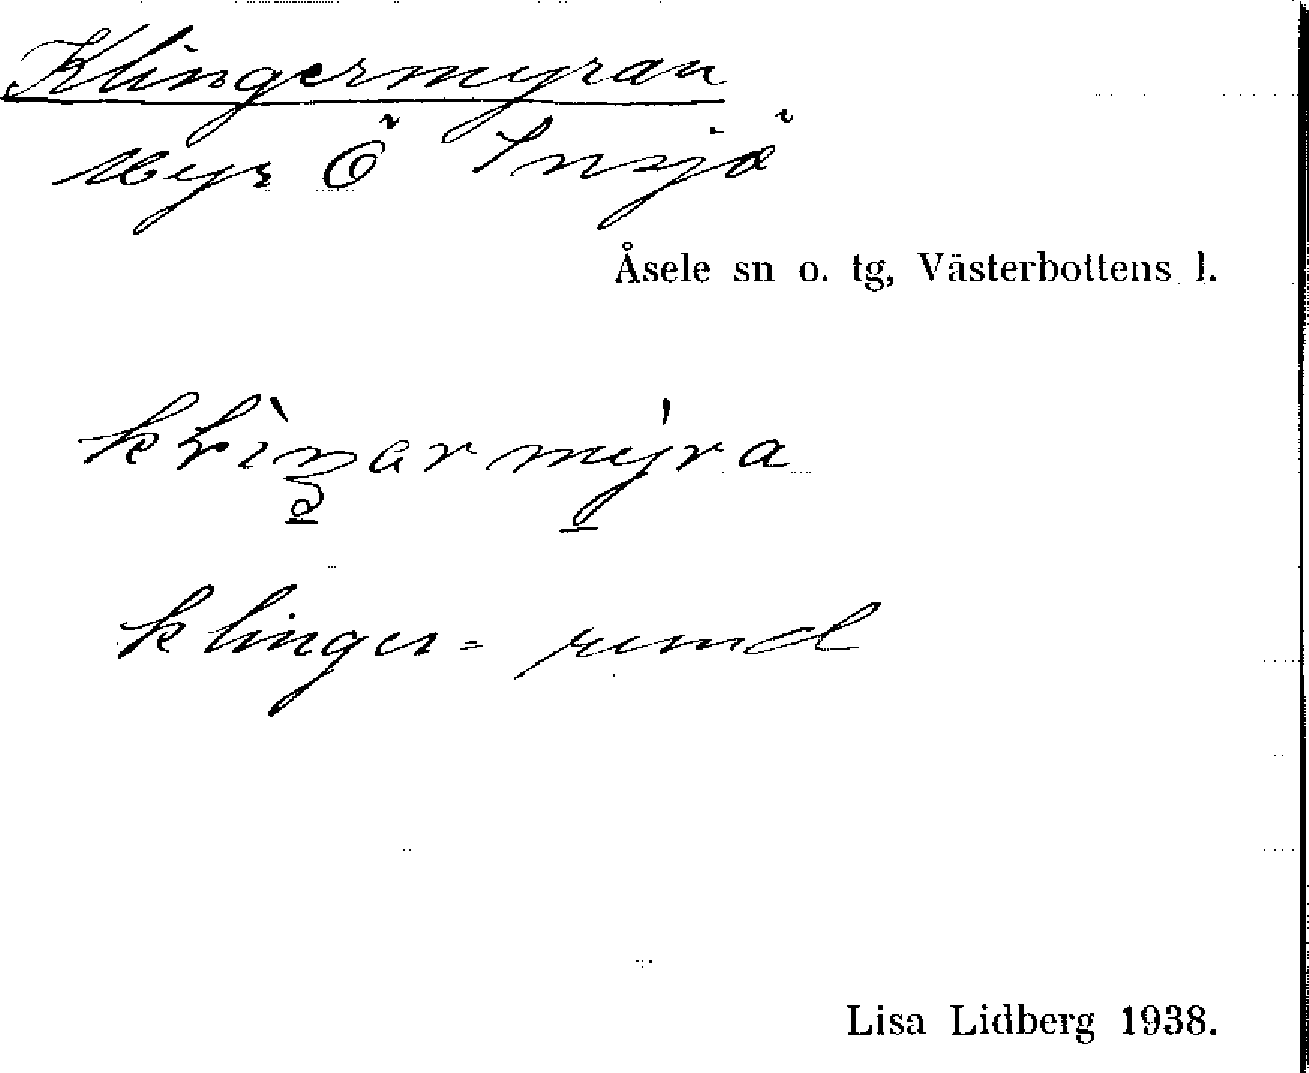 Klingermyran
Myr Ö Insjö
Åsele sn o. tg, Västerbottens l.
klinger = rund
Lisa Lidberg 1938.